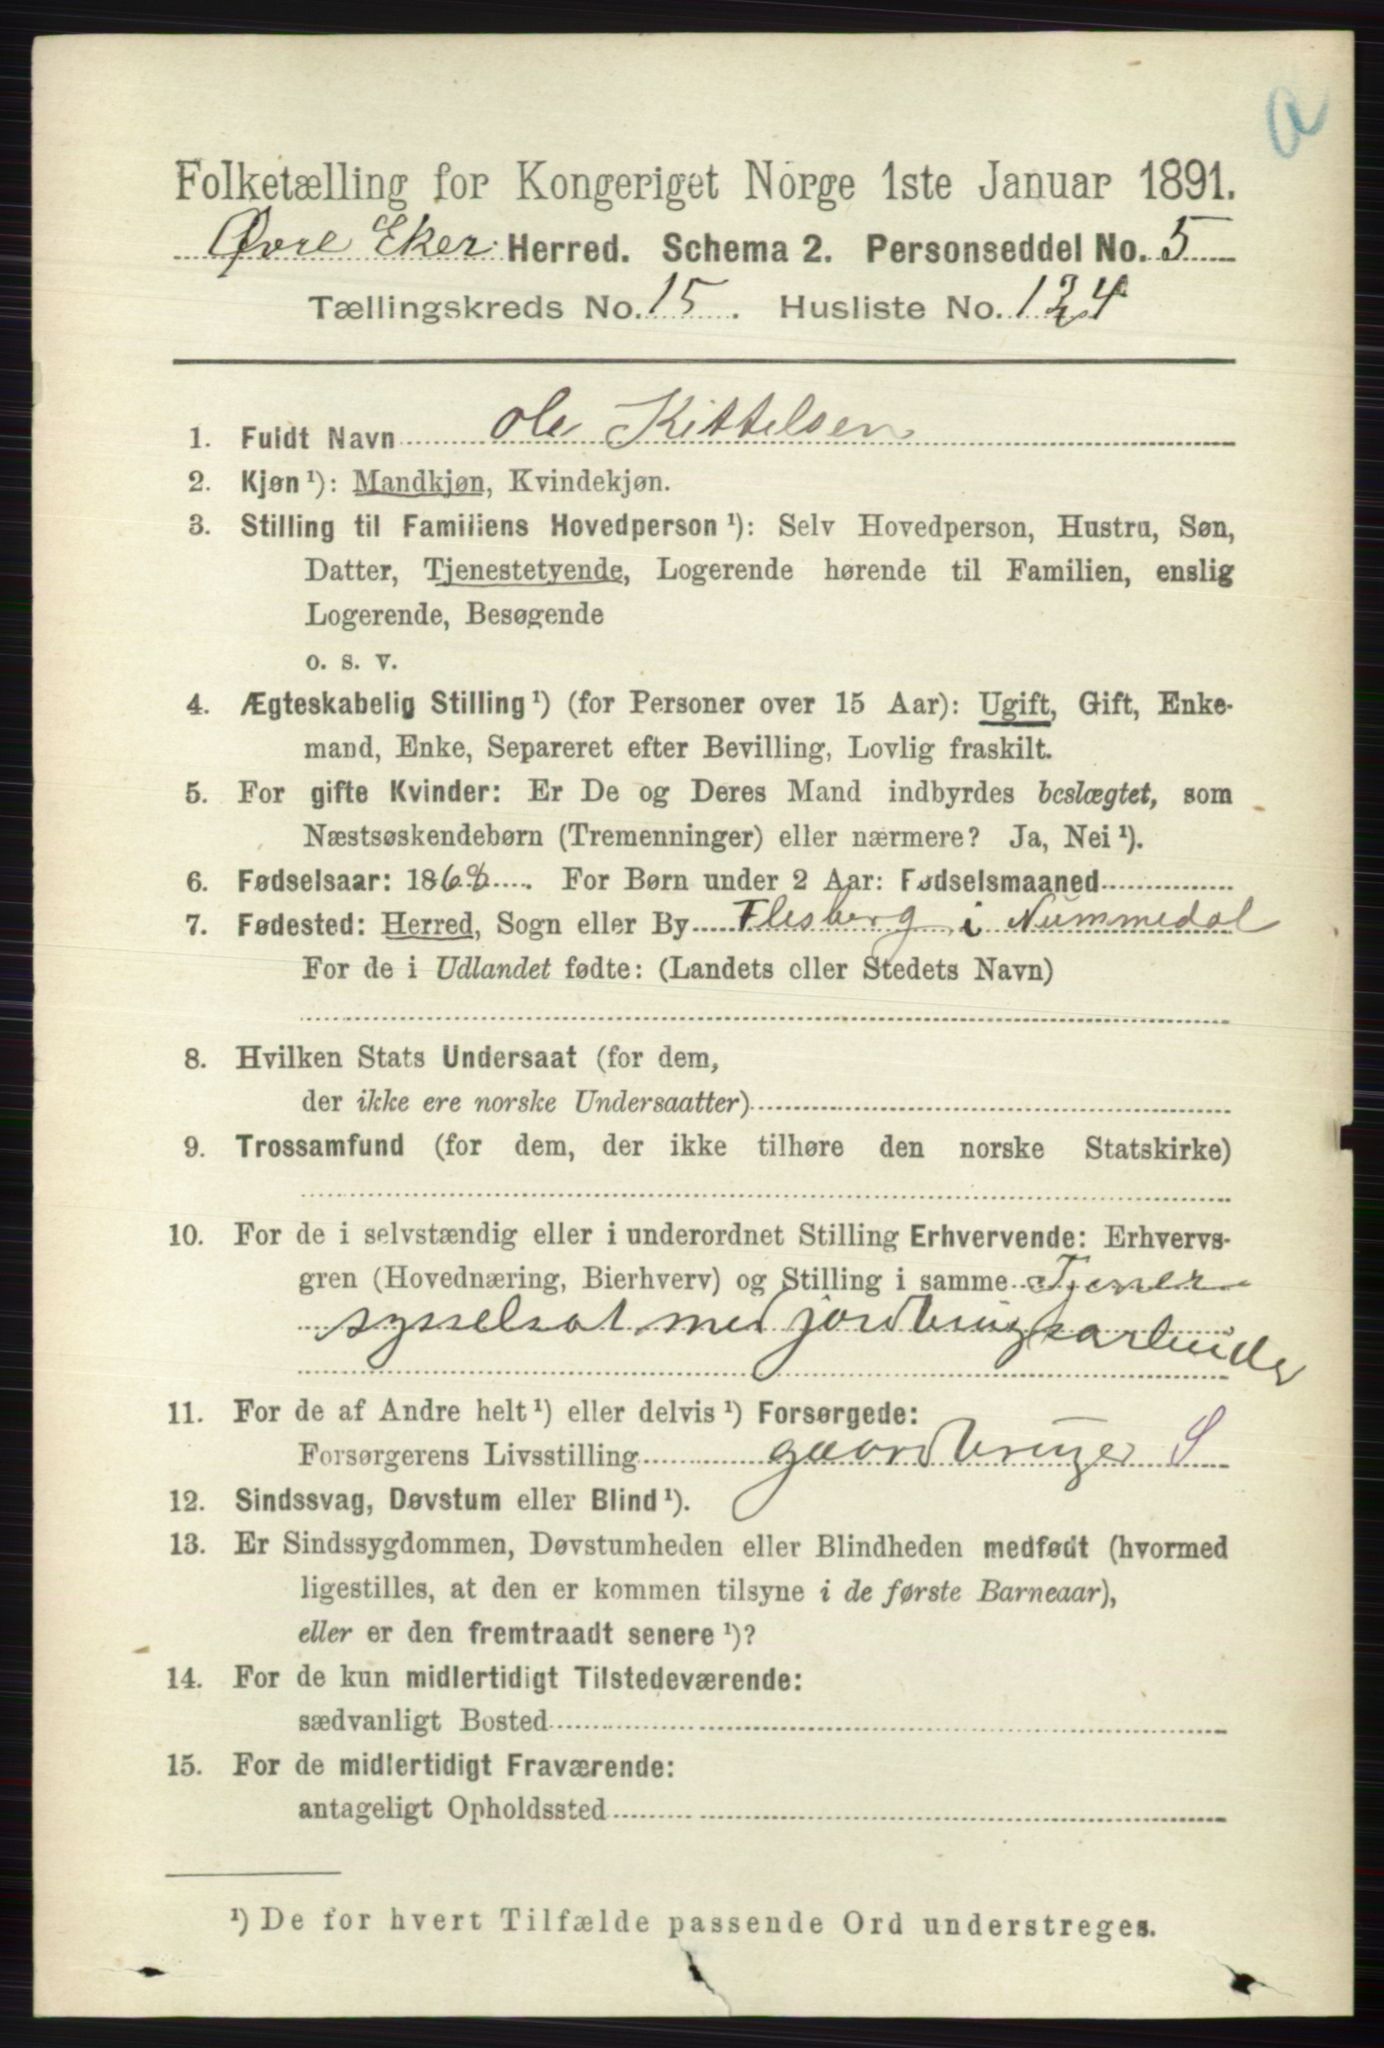 a
Folketælling for Kongeriget Norge 1ste Januar 1891.
Øvre Eker Herred. Schema 2. Personseddel No. 5
Tællingskreds No. 15. Husliste No. 124
1. Fuldt Navn Ole Kittelsen
2. Kjøn¹): Mandkjøn, Kvindekjøn.
3. Stilling til Familiens Hovedperson¹): Selv Hovedperson, Hustru, Søn,
Datter, Tjenestetyende, Logerende hørende til Familien, enslig
Logerende, Besøgende
o. s. v.
4. Ægteskabelig Stilling¹) (for Personer over 15 Aar): Ugift, Gift, Enke-
mand, Enke, Separeret efter Bevilling, Lovlig fraskilt.
5. For gifte Kvinder: Er De og Deres Mand indbyrdes beslægtet, som
Næstsøskendebørn (Tremenninger) eller nærmere? Ja, Nei¹).
6. Fødselsaar: 1868. For Børn under 2 Aar: Fødselsmaaned
7. Fødested: Herred, Sogn eller By Flesberg i Nummedal
For de i Udlandet fødte: (Landets eller Stedets Navn)
8. Hvilken Stats Undersaat (for dem,
der ikke ere norske Undersaatter)
9. Trossamfund (for dem, der ikke tilhøre den norske Statskirke)
10. For de i selvstændig eller i underordnet Stilling Erhvervende: Erhvervs-
gren (Hovednæring, Bierhverv) og Stilling i samme Tjener
sysselsat med jordbrugsarbeide
11. For de af Andre helt¹) eller delvis¹) Forsørgede:
Forsørgerens Livsstilling gaardbruger S
12. Sindssvag, Døvstum eller Blind¹).
13. Er Sindssygdommen, Døvstumheden eller Blindheden medfødt (hvormed
ligestilles, at den er kommen tilsyne i de første Barneaar),
eller er den fremtraadt senere¹)?
14. For de kun midlertidigt Tilstedeværende:
sædvanligt Bosted
15. For de midlertidigt Fraværende:
antageligt Opholdssted
¹) De for hvert Tilfælde passende Ord understreges.